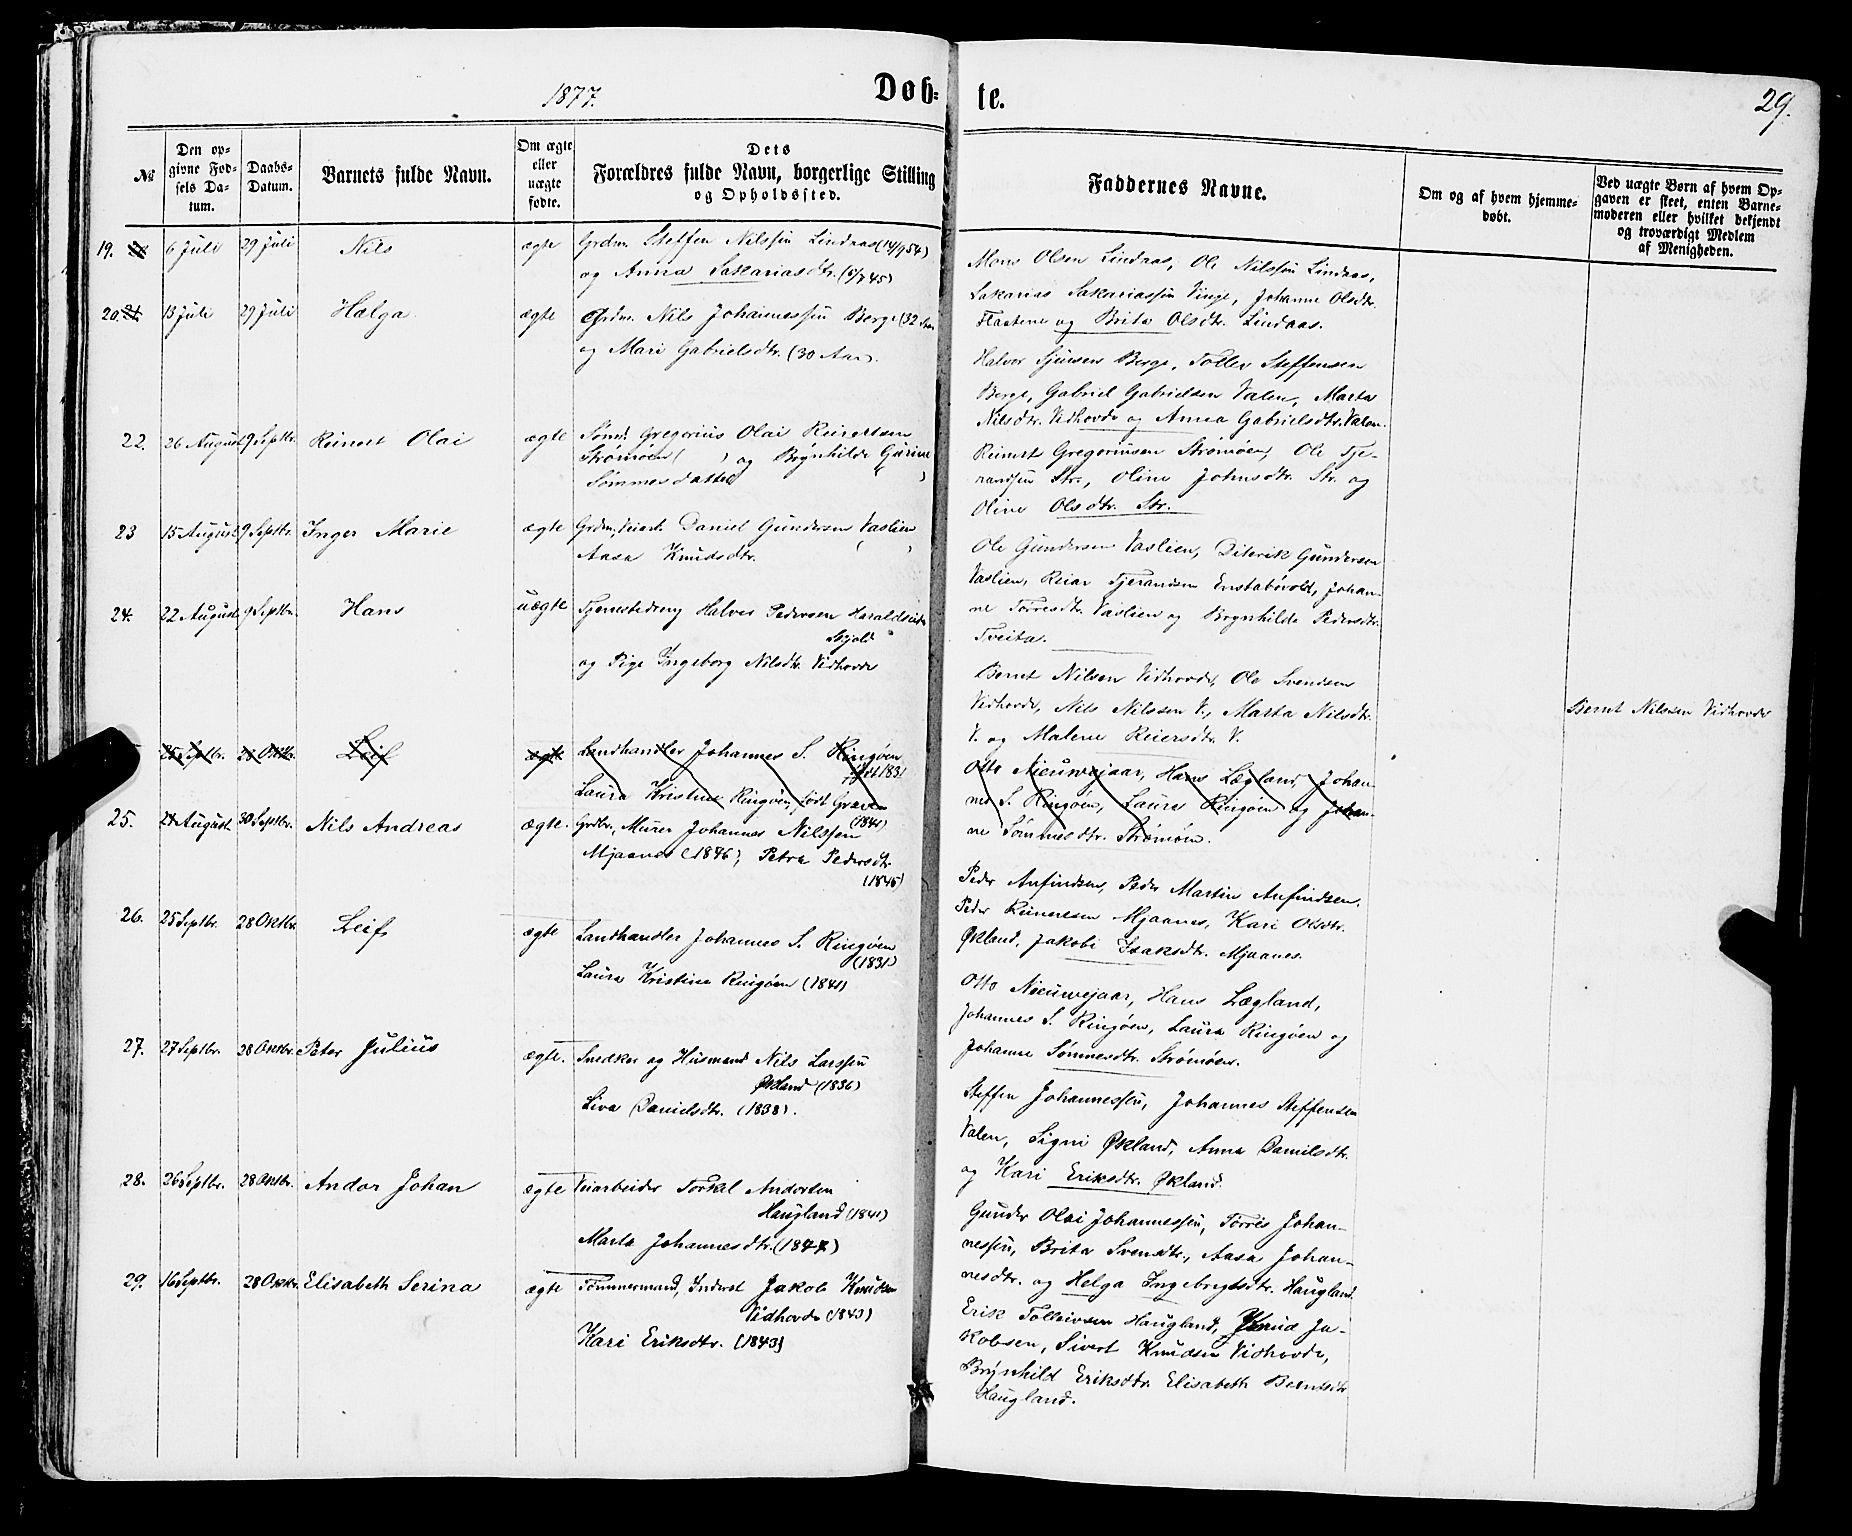 1877.
Døb-
te.
29.
№
Den op-
givne Fød-
sels Da-
tum.
Daabs-
Datum.
Barnets fulde Navn.
Om ægte
eller
uægte
fødte.
Dets
Forældres fulde Navn, borgerlige Stilling
og Opholdssted.
Faddernes Navne.
Om og af hvem hjemme-
døbt.
Ved uægte Børn af hvem Op-
gaven er skeet, enten Barne-
moderen eller hvilket bekjendt
og troværdigt Medlem
af Menigheden.
19. 6 Juli 29 Juli Nils ægte Grdm. Steffen Nilssøn Lindaas (14/9 54)
og Anna Sakariasdtr. (5/7 45)
Mons Olsen Lindaas, Ole Nilssøn Lindaas,
Sakarias Sakariassøn Vinje, Johanne Olsdtr.
Flaatene og Brita Olsdtr. Lindaas.
20. 21. 13 Juli 29 Juli Helga ægte Grdm. Nils Johannessøn Berge (32 Aar
og Mari Gabrielsdtr. (30 Aar).
Halvor Sjursen Berge, Tollev Steffensen
Berge, Gabriel Gabrielsen Valen, Marta
Nilsdtr. Vidhovde og Anna Gabrielsdtr. Valen.
22. 26 August 9 Septbr. Reinert Olai ægte Sømd. Gregorius Olai Reinertsen
Strømøen ( ) og Brynhilde Gurine
Sømmesdatter ( )
Reinert Gregoriussen Strømøen, Ole Tje-
randsen Str., Oline Johnsdtr. Str. og
Oline Olsdtr. Str.
23 15 August 9 Septbr. Inger Marie ægte Grdm., Veiarb. Daniel Gundersen Vaslien
Aasa Knudsdtr. ( )
Ole Gundersen Vaslien, Diderik Gundersen
Vaslien, Reiar Tjerandsen Enstabøvold, Johan-
ne Torresdtr. Vaslien og Brynhilde Pedersdtr.
Tveita.
24. 22 August 9 Septbr. Hans uægte Tjenestedreng Halvor Pedersen Haraldseide
Skjold
og Pige Ingeborg Nilsdtr. Vidhovde
Bernt Nilsen Vidhovde, Ole Svendsen
Vidhovde, Nils Nilssen V., Marta Nilsdtr.
V. og Malene Reiersdtr. V.
Bernt Nilssen Vidhovde
25 Septbr. 28 Oktbr. Leif ægte Landhandler Johannes S. Ringøen
født 1831
Laura Kristine Ringøen, født Graven
(1841)
Otto Nieuwejaar, Hans Lægland, Johan-
nes S. Ringøen, Laura Ringøen og Johan-
ne Sømmesdtr. Strømøen.
25. 21 August 30 Septbr. Nils Andreas ægte. Grdbr., Murer Johannes Nilssen
Mjaanes (1846), Petra Pedersdtr.
(1845)
Peder Anfindsen, Peder Martin Anfindsen,
Peder Reinertsen Mjaanes, Kari Olsdtr.
Økland, Jakobi Isaksdtr. Mjaanes.
26. 25 Septbr. 28 Oktbr. Leif ægte Landhandler Johannes S. Ringøen
(1831)
Laura Kristine Ringøen (1841)
Otto Nieuwejaar, Hans Lægland,
Johannes S. Ringøen, Laura Ringøen og
Johanne Sømmesdtr. Strømøen.
27. 27 Septbr. 28 Oktbr. Peter Julius ægte. Snedker og Husmand Nils Larssen
Økland (1836)
Liva Danielsdtr. (1838).
Steffen Johannessen, Johannes Steffensen
Valen, Signi Økland, Anna Danielsdtr.
og Kari Eriksdtr. Økland.
28. 26 Septbr. 28 Oktbr. Andor Johan ægte Veiarbeider Torkel Andorsen
Haugland (1841)
Marta Johannesdtr. (1847)
Gunder Olai Johannessen, Torris Johan-
nessen, Brita Svendtr., Aasa Johan-
nesdtr. og Helga Ingebrigtsdtr. Haugland.
29. 16 Septbr. 28 Oktbr. Elisabeth Serina ægte Tømmermand, Inderst Jakob Knudsen
Vidhovde (1843)
Kari Eriksdtr. (1843)
Erik Tolleivsen Haugland, Knud Ja-
kobsen, Sivert Knudsen Vidhovde,
Brynhild Eriksdtr. Elisabeth Berntsdtr.
Haugland.